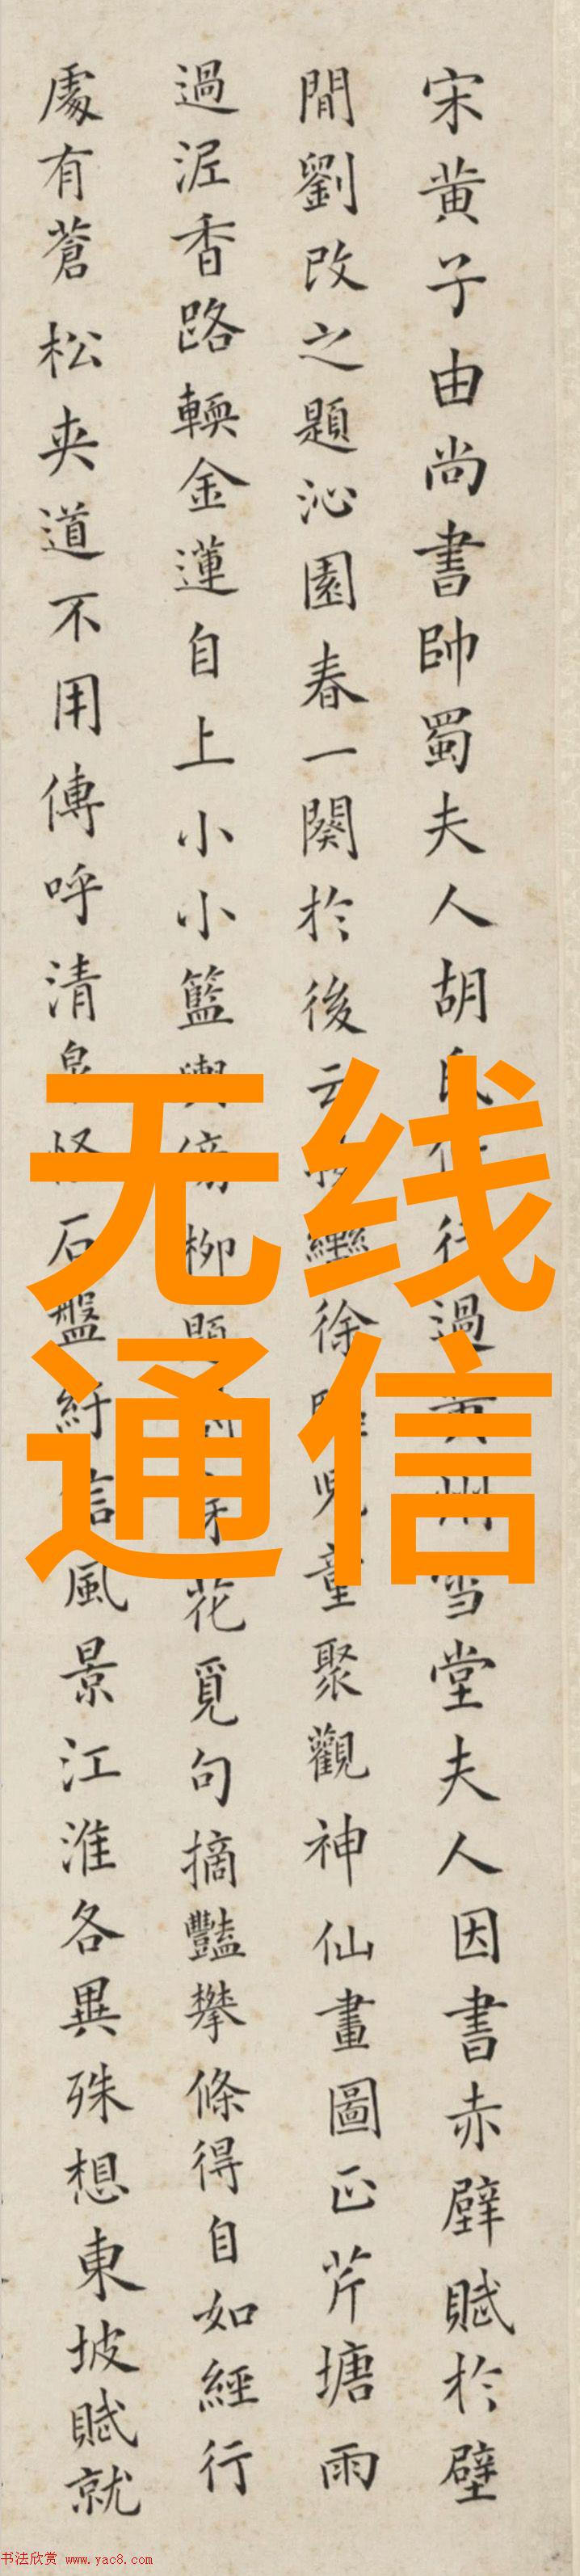 宋黄子由尚書帥蜀夫人胡氏行過黄州雪堂夫人因書赤壁賦於壁
間劉改之題沁園春一闋於後云按轡徐驅兒童聚觀神仙畫圖正芹塘雨
過泥香路輭金蓮自上小小籃輿傍柳題詩穿花覓句摘豔攀條得自如經行
處有蒼松夾道不用傳呼清泉怪石盤紆信風景江淮各異殊想東坡賦就
无线
通信
书法欣赏 www.yac8.com